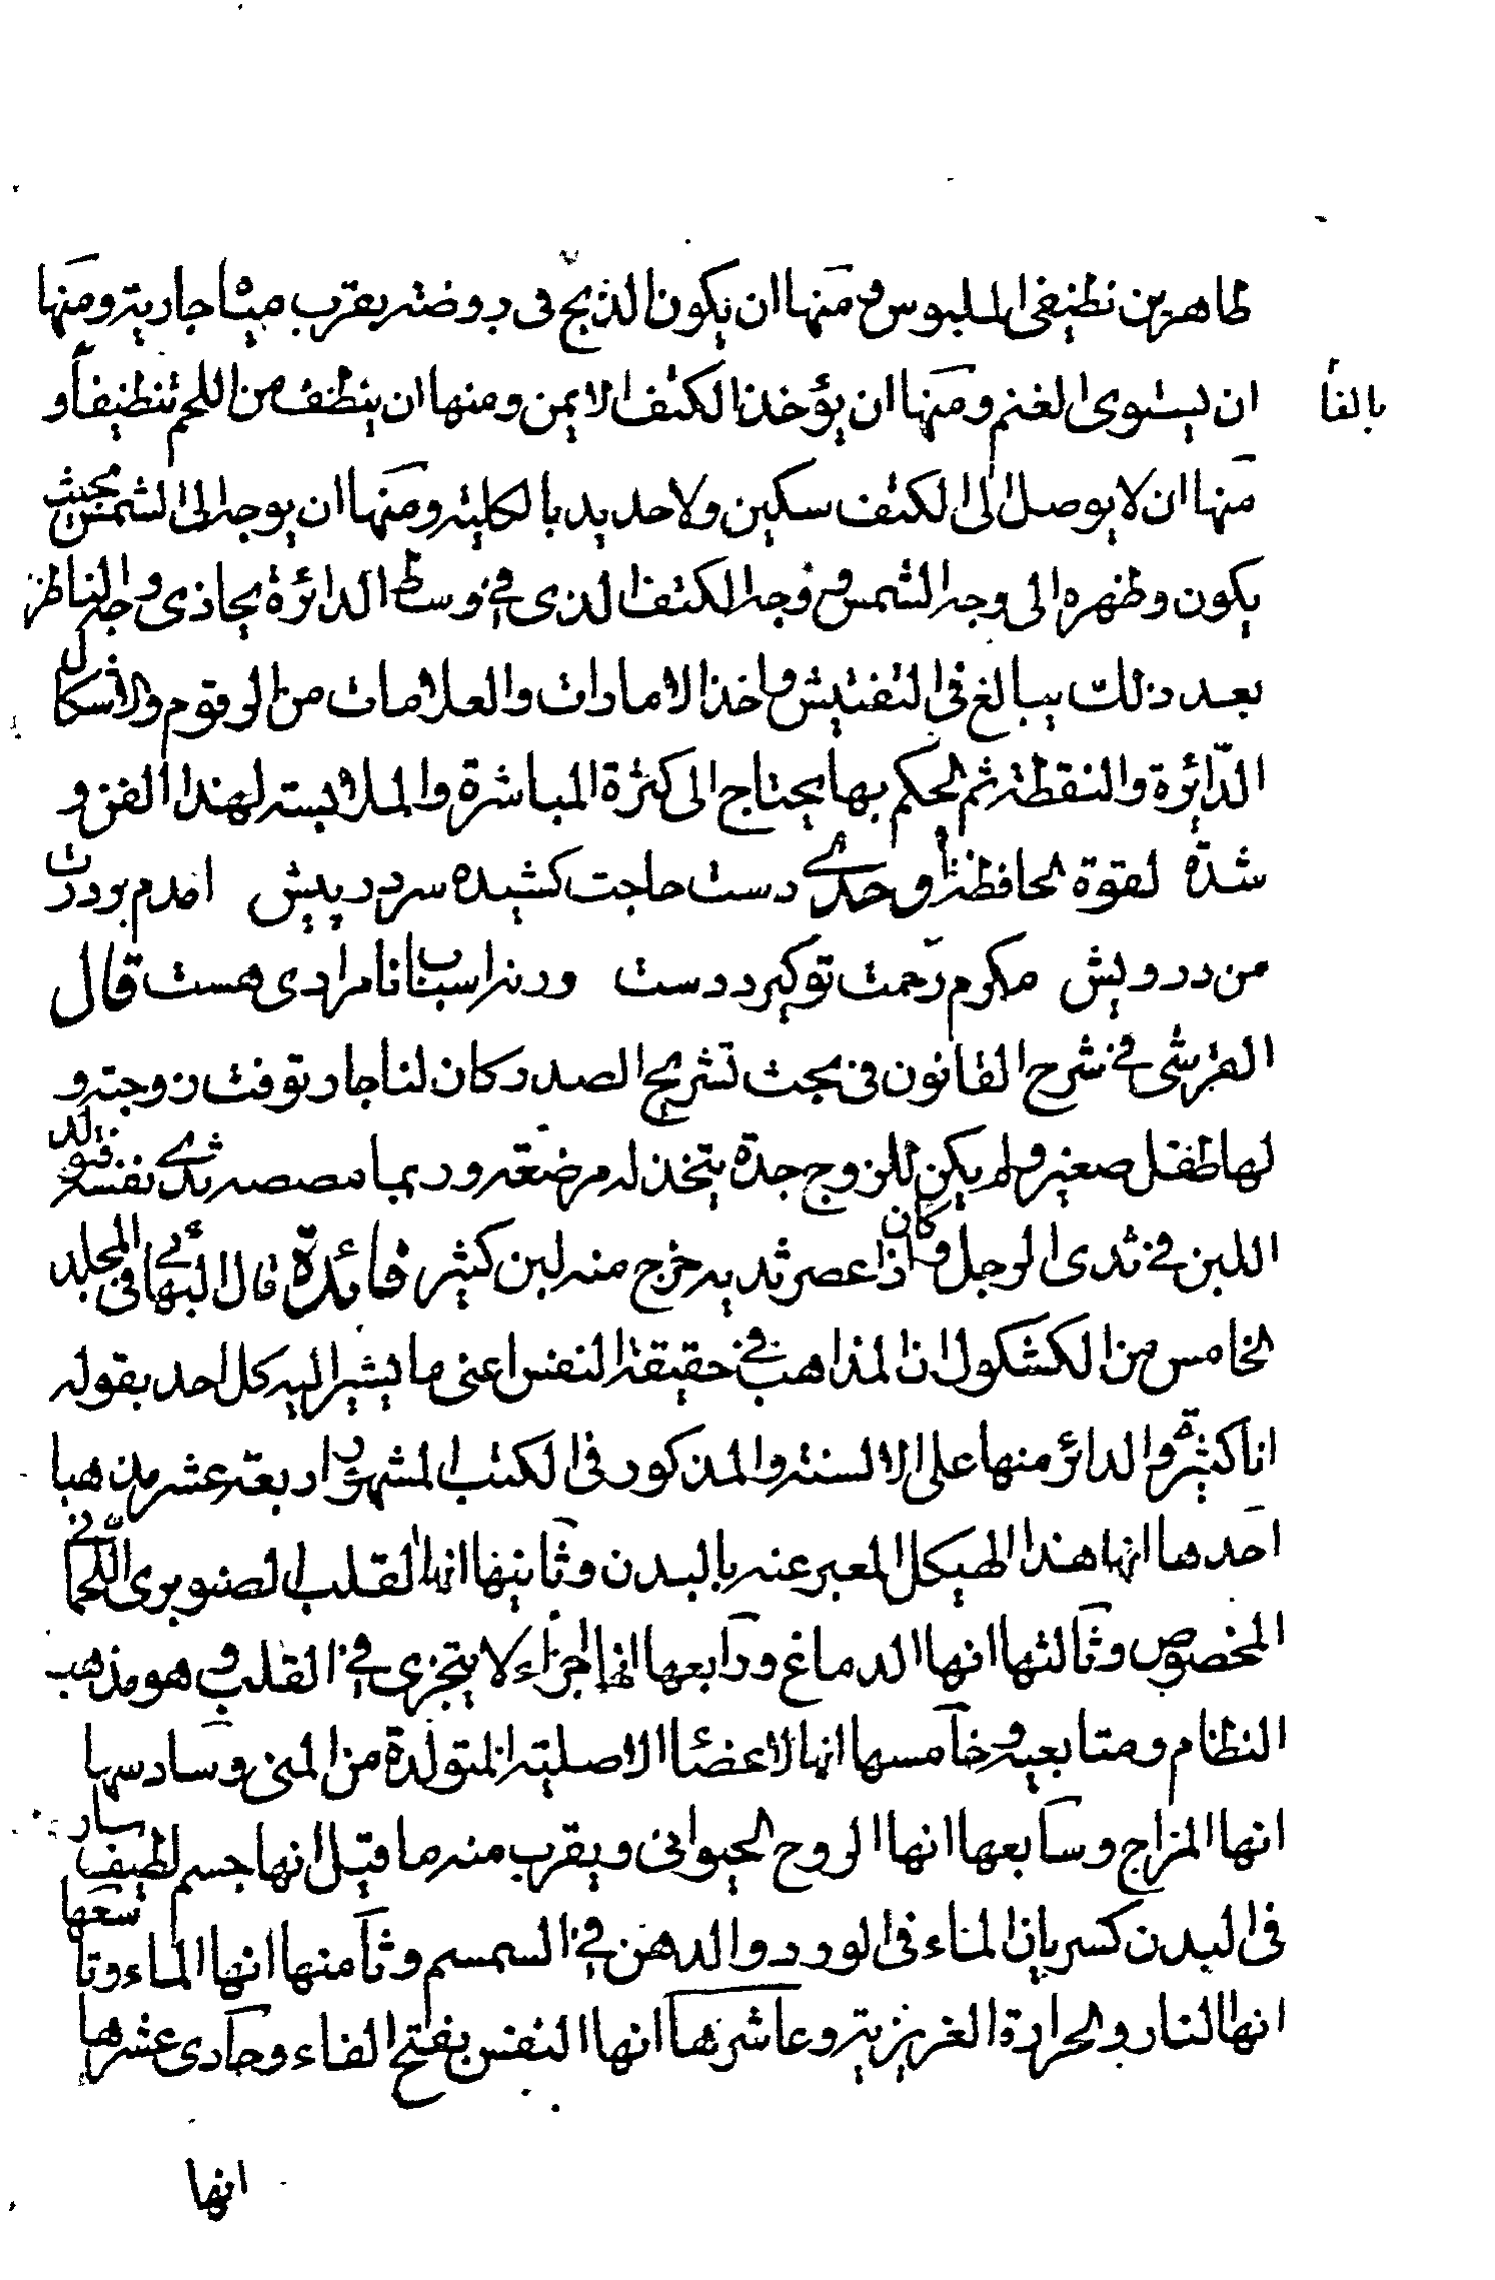 طاهرين نظيفى الملبوس و منها ان يكون الذبح فى روضة بقرب مياه جارية ومنها
ان يستوى الغنم ومنها ان يؤخذ الكتف الايمن ومنها ان ينظف من اللحم تنظيفاً و
بالغاً
منها ان لا يوصل الى الكتف سكين ولا حديد بالكلية ومنها ان يوجه الى الشمس بحيث
يكون وظهره الى وجه الشمس و وجه الكتف الذى فى وسط الدائرة يحاذى وجه الناظر
بعد ذلك يبالغ فى التفتيش واخذ الامارات والعلامات من الرقوم والاشكال
الدّائرة والنقطة ثم الحكم بها يحتاج الى كثرة المباشرة والملابسة لهذا الفن و
شدّة لقوة الحافظة وحدى دست حاجت كشيده سر در پيش امدم بردرت
من درويش مكرم رحمت تو كيرد دست ورنه اسباب نامرادى هست قال
القرشى فى شرح القانون فى بحث تشريح الصدر كان لنا جار توفت زوجته و
لها طفل صغير ولم يكن للزوج جدة يتخذ له مرضعة وربما مصصه ثدى نفسه فتولد
اللبن فى ثدى الرجل وكان اذا عصر ثديه خرج منه لبن كثير فائدة قال البهائى فى المجلد
الخامس من الكشكول ان المذاهب فى حقيقة النفس اعنى ما يشير اليه كل احد بقوله
انا كثيرة والدائر منها على الالسنة والمذكور فى الكتب المشهورة اربعة عشر مذهبا
احدها انها هذا الهيكل المعبر عنه بالبدن وثانيها انها القلب الصنوبرى اللحمانى
المخصوص وثالثها انها الدماغ ورابعها انها اجزاء لا يتجزى فى القلب و هو مذهب
النظام ومتابعيه وخامسها انها الاعضا الاصلية المتولدة من المنى وسادسها
انها المزاج وسابعها انها الروح الحيوانى ويقرب منه ما قيل انها جسم لطيف سار
فى البدن كسريان الماء فى الورد والدهن فى السمسم وثامنها انها الماء وتاسعها
انها النار والحرارة الغريزية وعاشرها انها النفس بفتح الفاء وحادى عشرها
انها